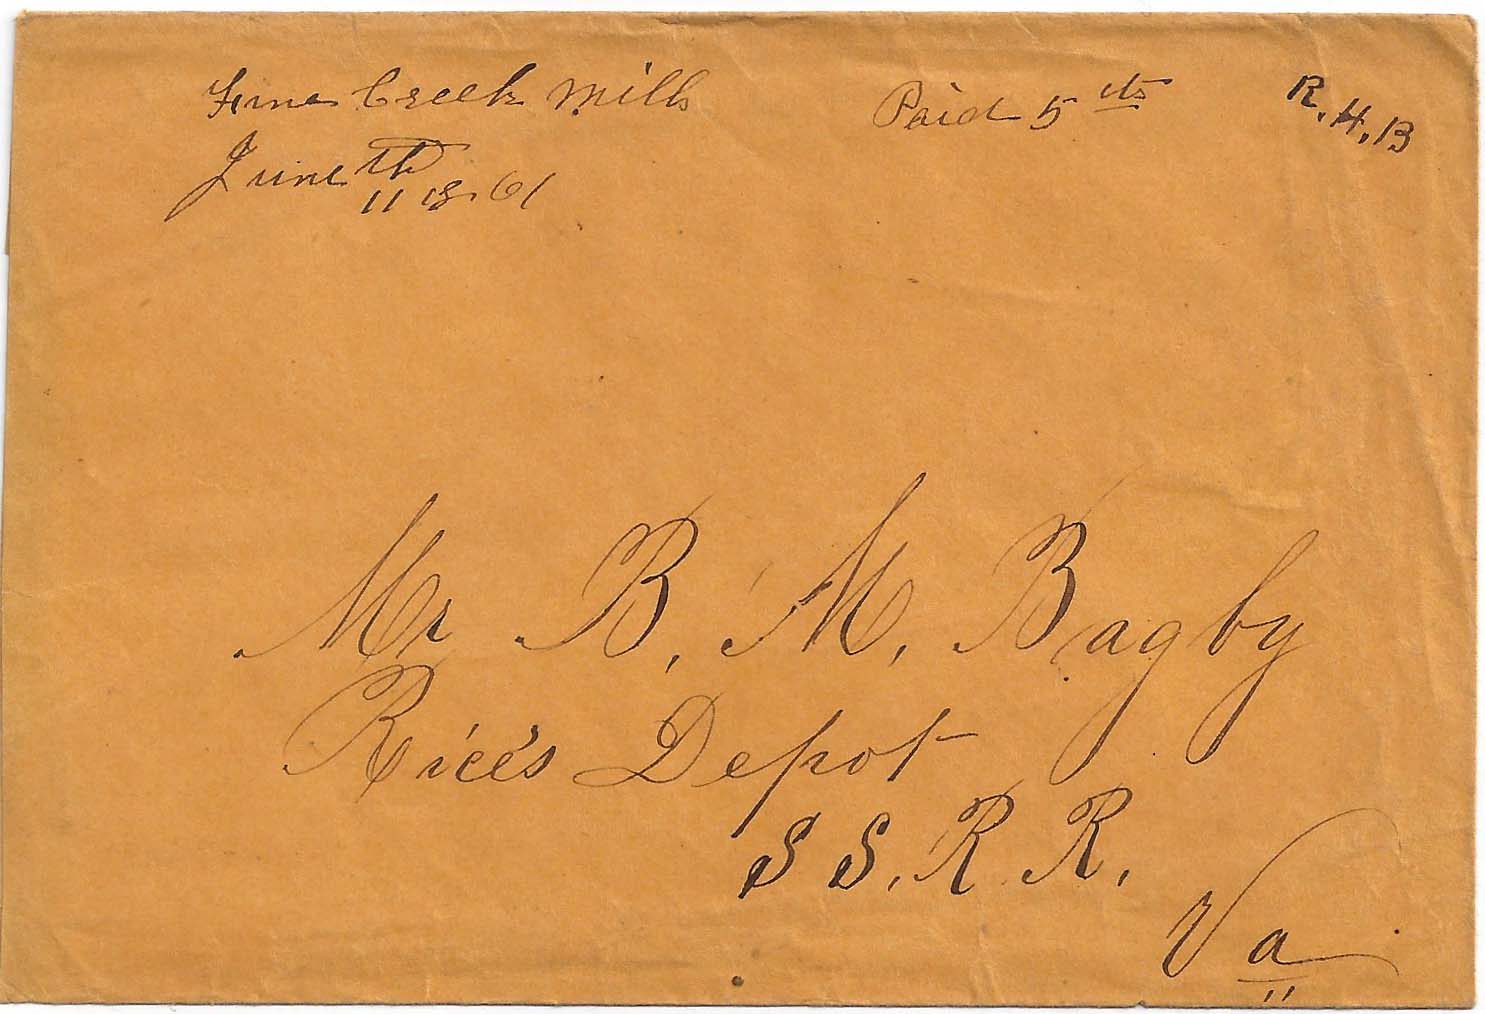 Fine Creek Mills
Paid 5 cts
R. H. B
June 11th 1861
Mr B. M. Bagby
Rice's Depot
S S. R R.
Va